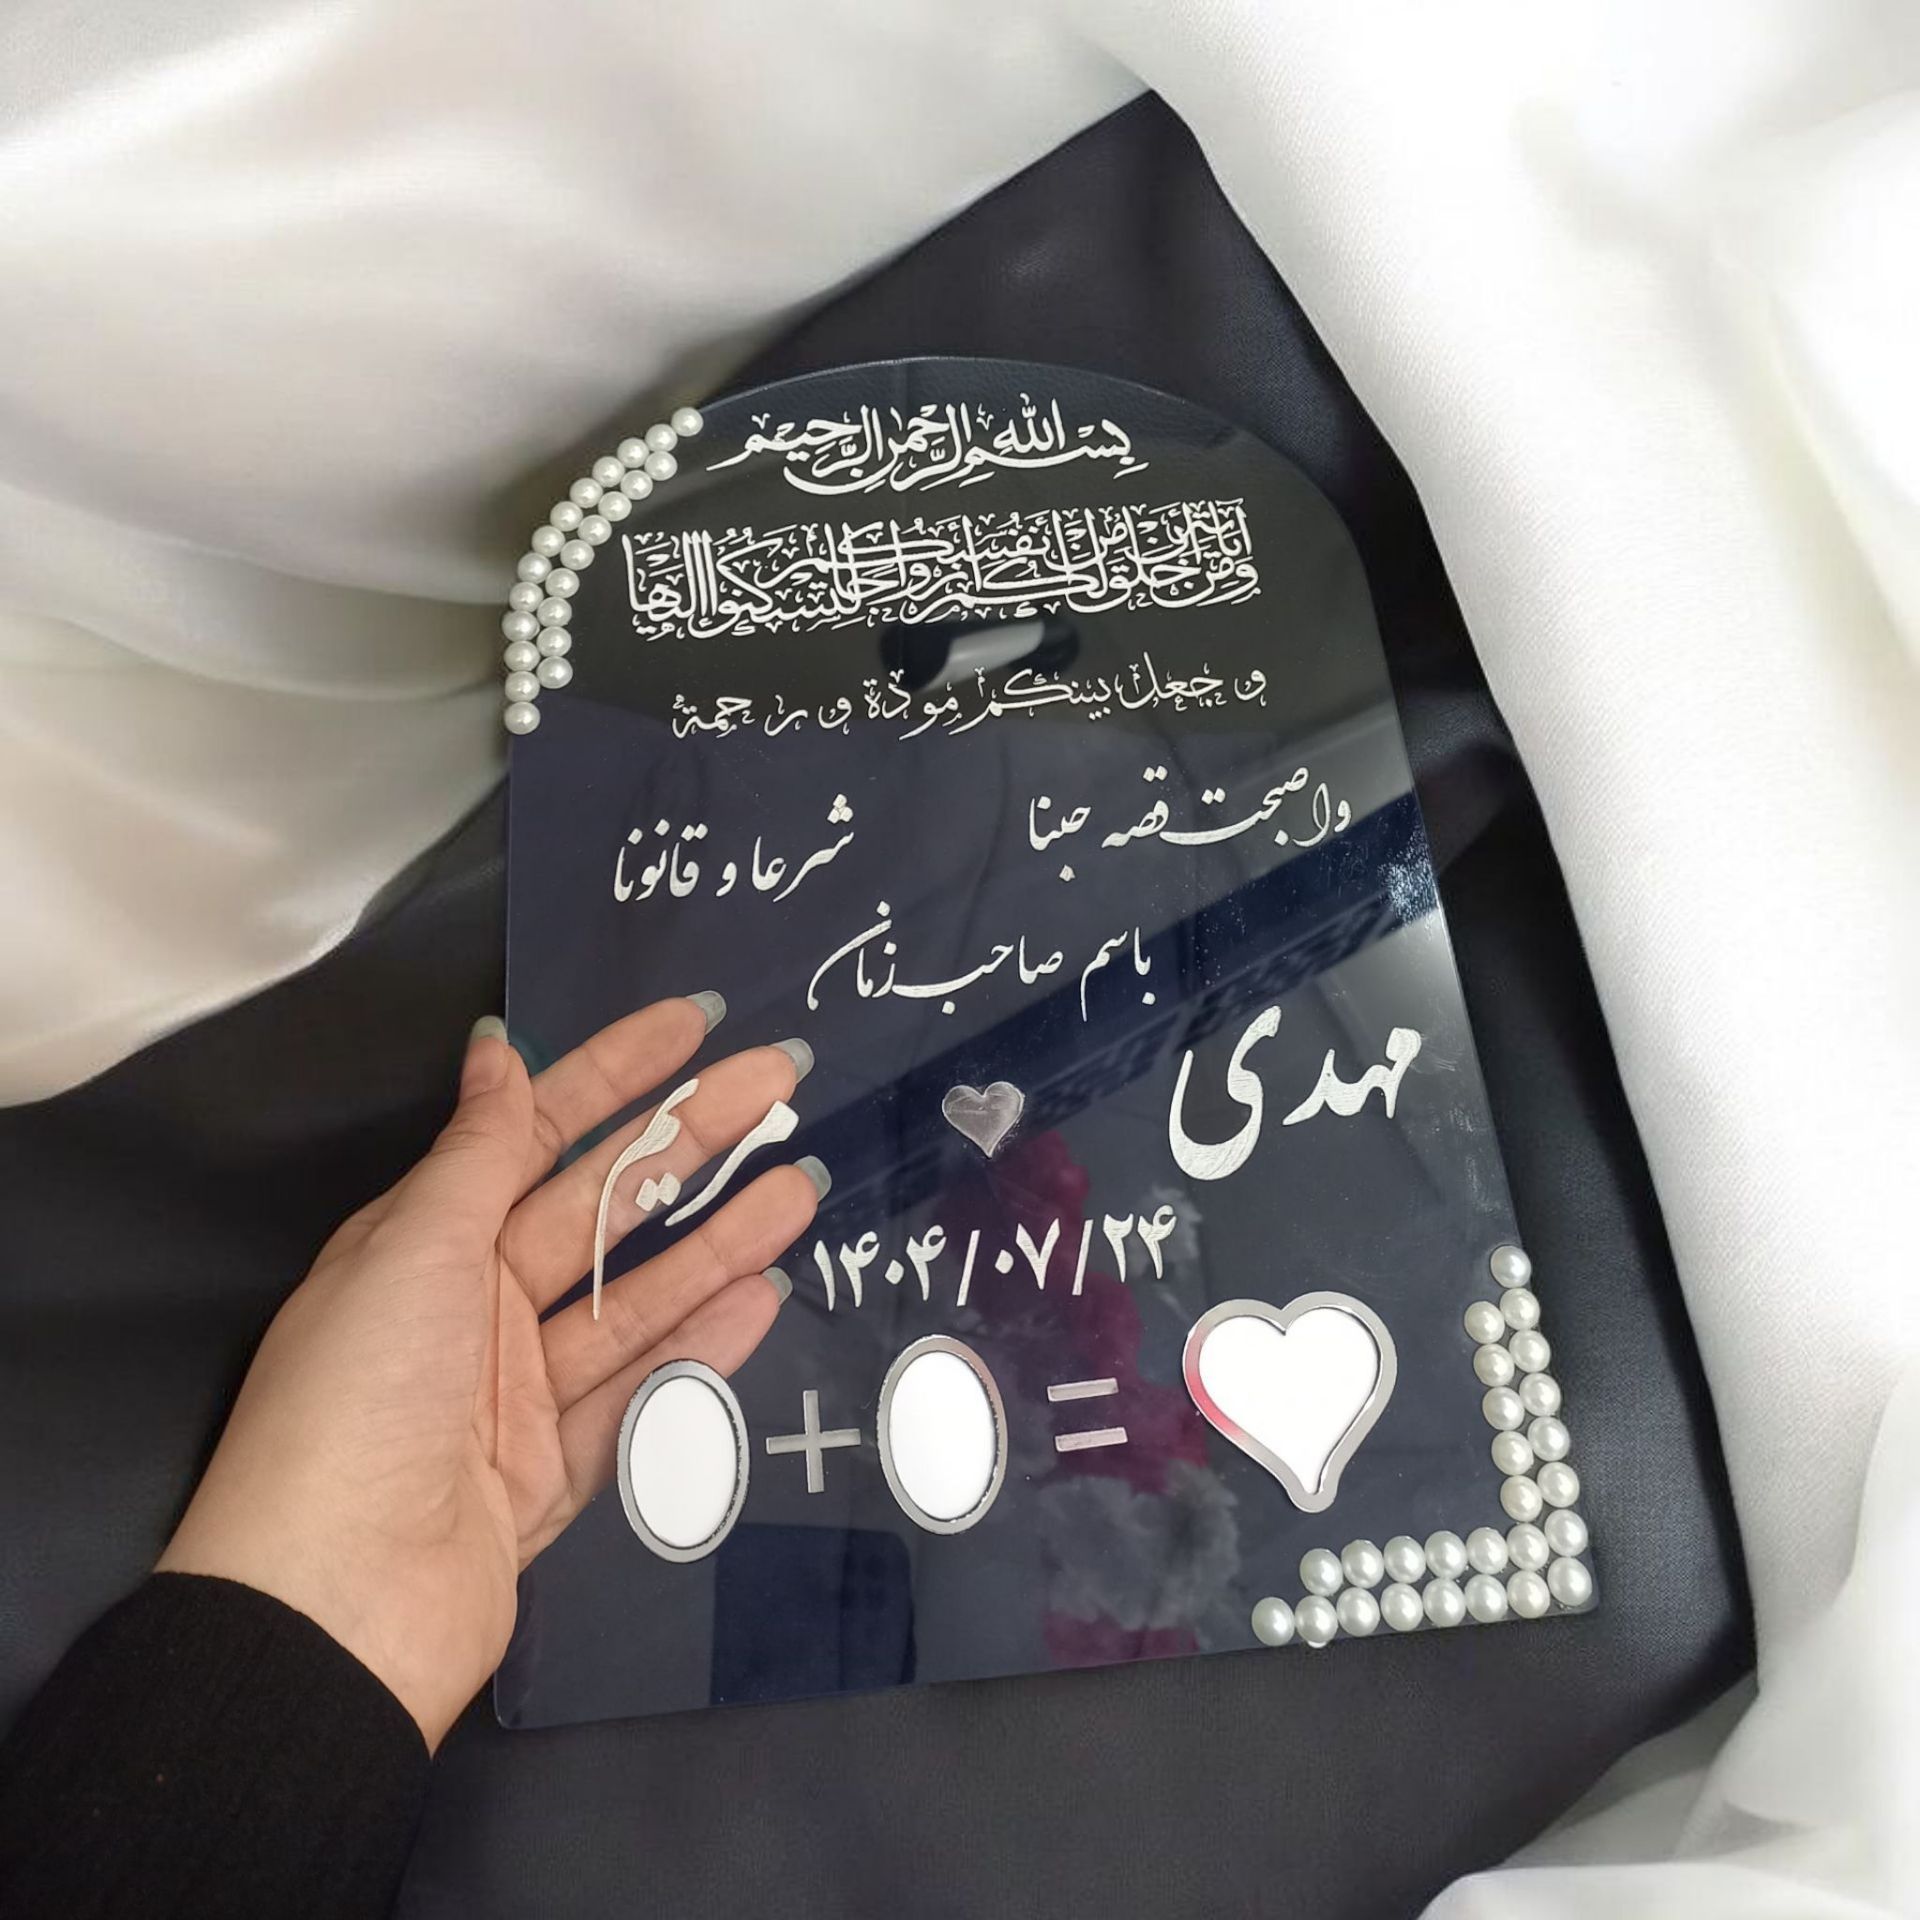 بِسْمِ اللهِ الرَّحْمنِ الرَّحِيمِ
وَمِنْ آيَاتِهِ أَنْ خَلَقَ لَكُمْ مِنْ أَنْفُسِكُمْ أَزْوَاجًا لِتَسْكُنُوا إِلَيْهَا
و جعل بينكم مودة و رحمة
واصبحت قصه حبنا شرعا و قانونا
باسم صاحب زمان
مهدی مریم
۱۴۰۴/۰۷/۲۴
+ =